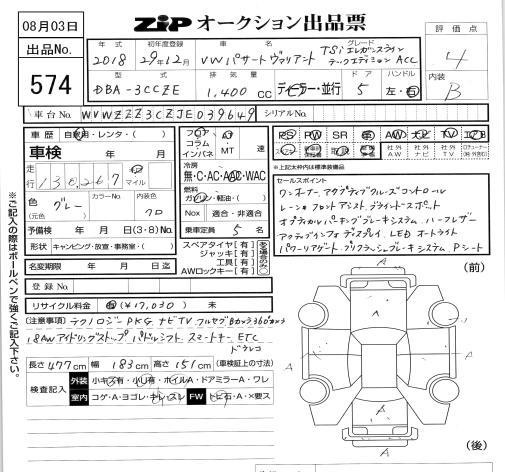 08月03日
ZIP オークション出品票
出品No.
574
年式
初年度登録
車名
グレード
評価点
2018
29年12月
VWパサートヴァリアント
TSi エレガンスライン
テックエディション ACC
4
型式
排気量
ドア
ハンドル
内装
DBA-3CCZE
1,400 CC
ディーラー・並行
5
左・右
B
車台No. WVWZZZ3CZJE039649
シリアルNo.
車歴 自家用・レンタ・( )
車検 年 月
走行
136267
マイル
色
グレー
(元色)
カラーNo.
内装色
クロ
予備検 年 月 日(3・8)No.
形状 キャンピング・放宣・事務室・( )
名変期限 年 月 日迄
フロア
コラム
インパネ
AT
・
MT
速
冷房
無・C・AC・AAC・WAC
燃料
ガソリン・軽油・( )
Nox 適合・非適合
乗車定員 5 名
スペアタイヤ[有]
ジャッキ[有]
工具[有]
AWロックキー[有]
PS PW SR 革 AW ナビ TV エアB
社外 AW
社外 ナビ
社外 TV
※上記太枠内は標準装備品
セールスポイント
ワンオーナー、アダプティブクルーズコントロール
レーン&フロントアシスト、ブラインドスポット
オプティカルパーキングブレーキシステム、ハーフレザー
アクティブインフォディスプレイ、LEDオートライト
パワーリアゲート、プリクラッシュブレーキシステム、Pシート
リサイクル料金 有(¥17,030) 未
(注意事項) テクノロジーPKG ナビTVフルセグBカメラ360°カメラ
18AWアイドリングストップ パドルシフト スマートキー ETC
ドラレコ
長さ 477cm 幅 183cm 高さ 151cm (車検証上の寸法)
検査記入
外装 小キズ有・小凹有・ホイルA・ドアミラーA・ワレ
室内 コゲ・A・ヨゴレ・キレ・スレ FW トビ石・A・×要ス
(前)
A
A
A
A
(後)
※ご記入の際はボールペンで強くご記入下さい。